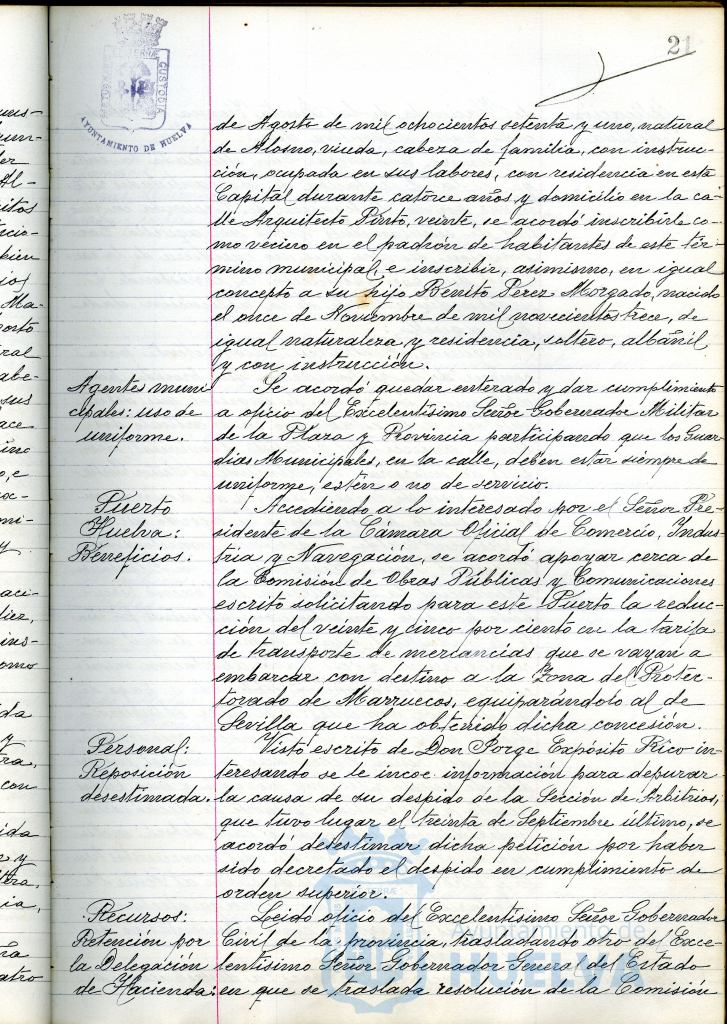 21
PORTUS MARIS ET TERRÆ CUSTODIA
AYUNTAMIENTO DE HUELVA
de Agosto de mil ochocientos setenta y uno, natural
de Alosno, viuda, cabeza de familia, con instruc-
ción, ocupada en sus labores, con residencia en esta
Capital durante catorce años y domicilio en la ca-
lle Arquitecto Pinto, veinte, se acordó inscribirle co-
mo vecino en el padrón de habitantes de este tér-
mino municipal, e inscribir, asimismo, en igual
concepto a su hijo Benito Pérez Morgado, nacido
el once de Noviembre de mil novecientos trece, de
igual naturaleza y residencia, soltero, albañil
y con instrucción.
Agentes muni
cipales: uso de
uniforme.
Se acordó quedar enterado y dar cumplimiento
a oficio del Excelentísimo Señor Gobernador Militar
de la Plaza y Provincia participando que los Guar-
dias Municipales, en la calle, deben estar siempre de
uniforme, estén o no de servicio.
Puerto
Huelva:
Beneficios.
Accediendo a lo interesado por el Señor Pre-
sidente de la Cámara Oficial de Comercio, Indus-
tria y Navegación, se acordó apoyar cerca de
la Comisión de Obras Públicas y Comunicaciones
escrito solicitando para este Puerto la reduc-
ción del veinte y cinco por ciento en la tarifa
de transporte de mercancias que se vayan a
embarcar con destino a la Zona del Protec-
torado de Marruecos, equiparándolo al de
Sevilla que ha obtenido dicha concesión.
Personal:
Reposición
desestimada.
Visto escrito de Don Jorge Expósito Rico in-
teresando se le incoe información para depurar
la causa de su despido de la Sección de Arbitrios,
que tuvo lugar el treinta de Septiembre último, se
acordó desestimar dicha petición por haber
sido decretado el despido en cumplimiento de
orden superior.
Recursos:
Retención por
la Delegación
de Hacienda:
Leido oficio del Excelentísimo Señor Gobernador
Civil de la provincia, trasladando otro del Exce-
lentísimo Señor Gobernador General del Estado
en que se traslada resolución de la Comisión
Ayuntamiento de
HUELVA